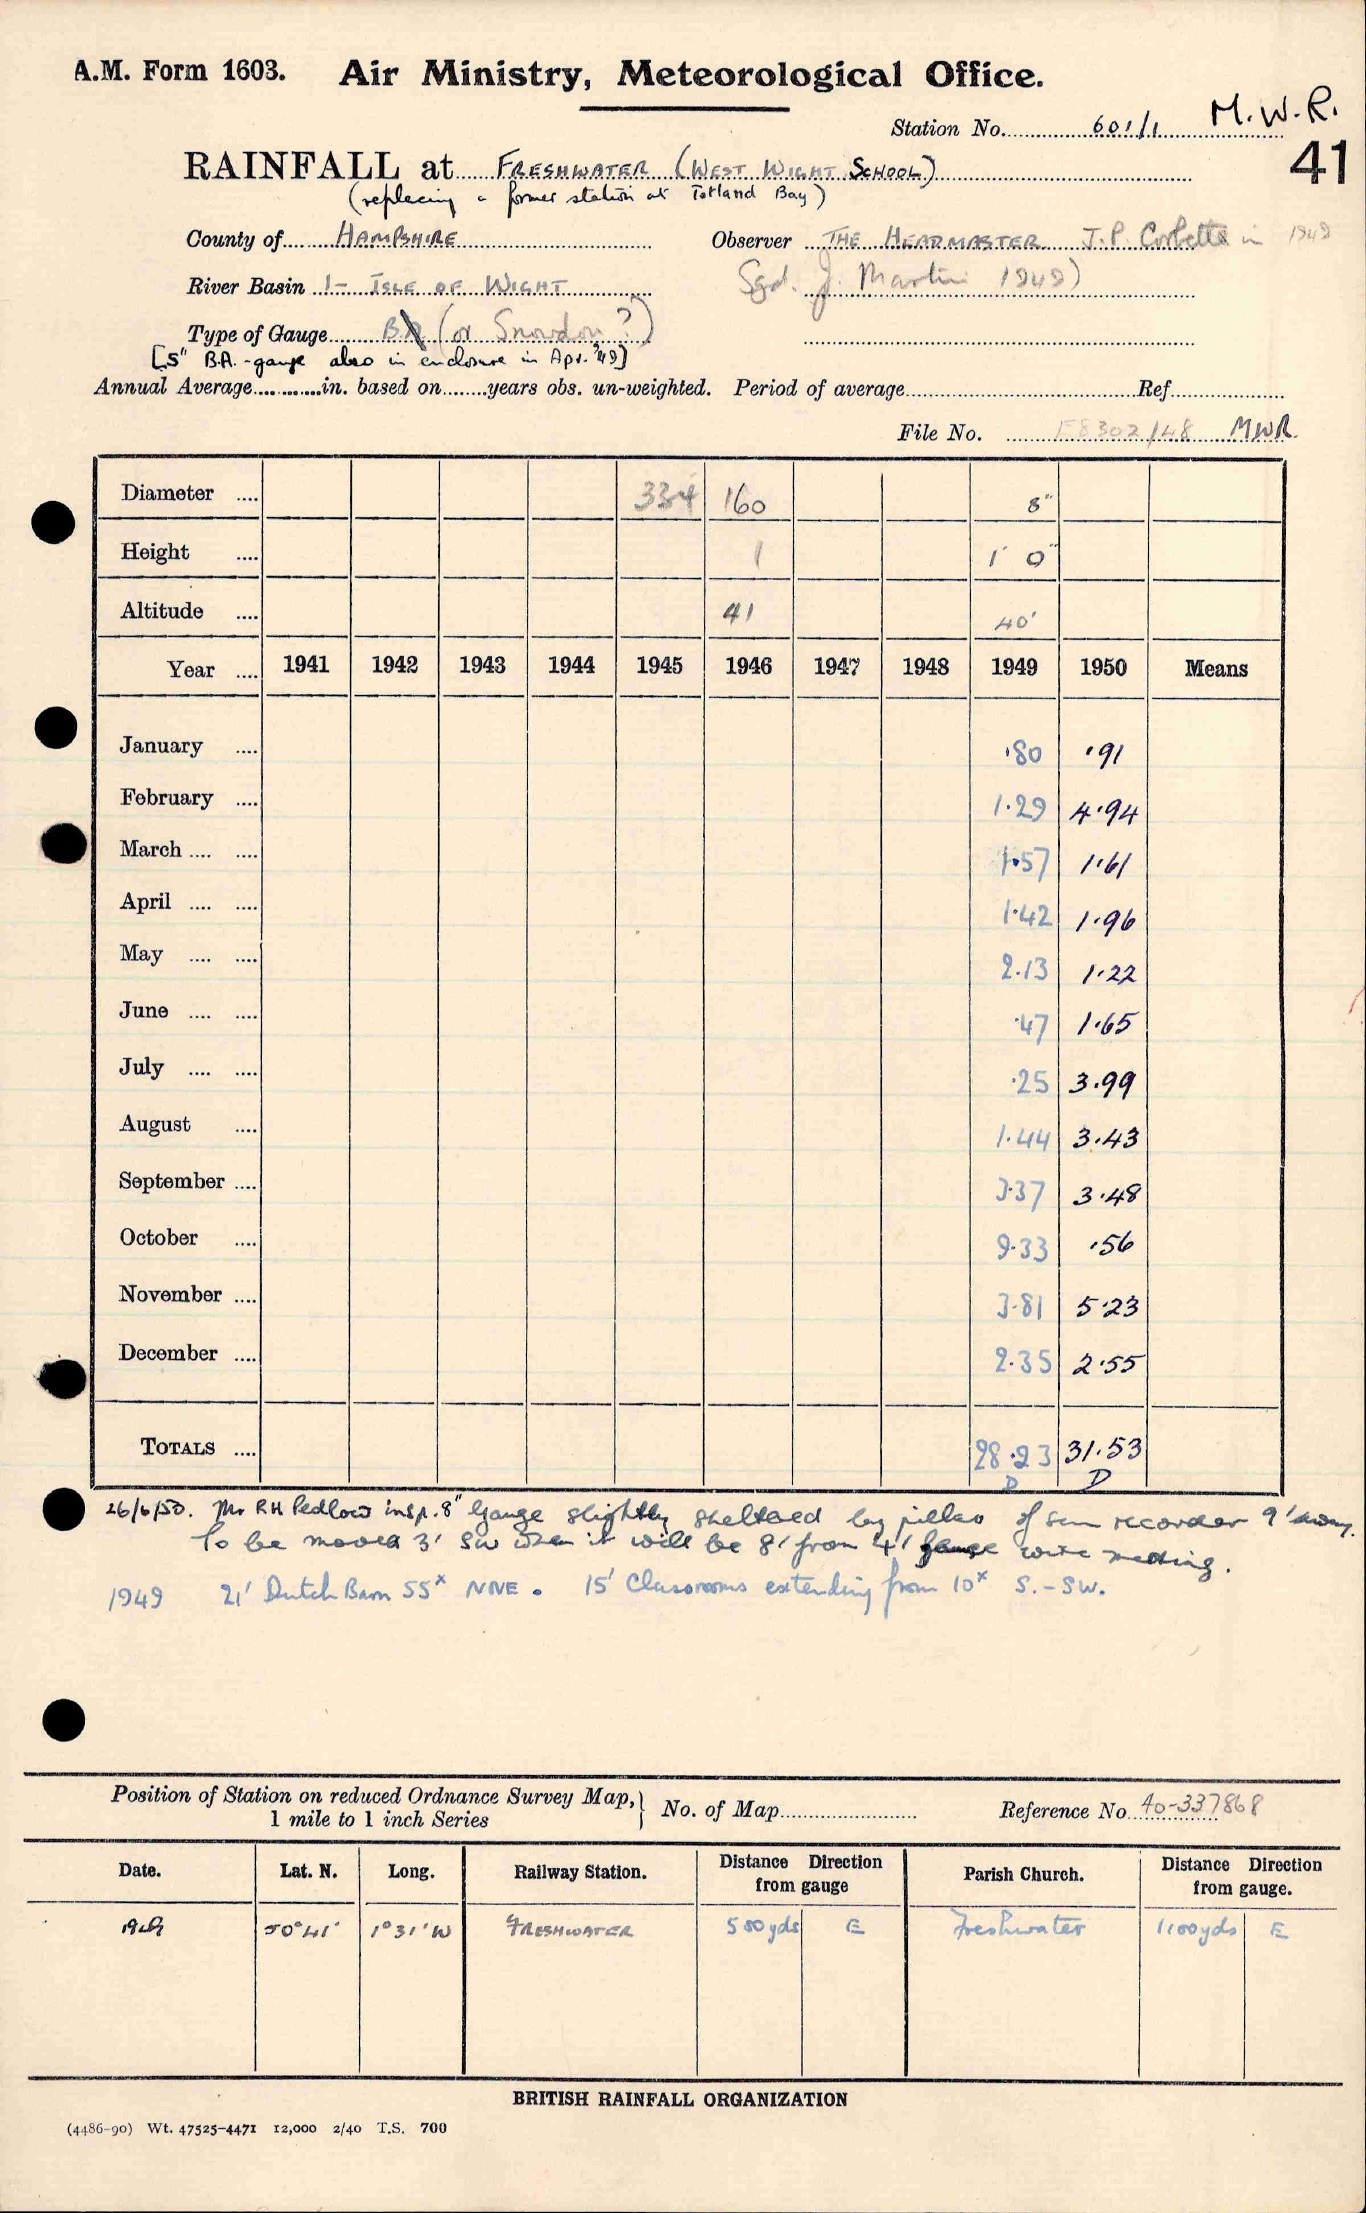 A.M. Form 1603. Air Ministry, Meteorological Office.
M.W.R.
Station No. 601/1
41
RAINFALL at FRESHWATER (WEST WIGHT SCHOOL)
(replacing a former station at Totland Bay)
County of HAMPSHIRE Observer THE HEADMASTER J.P. Corbette in 1949
River Basin 1- ISLE OF WIGHT Sgd. J. Martin 1949)
Type of Gauge BA (or Snowdon?)
[5" B.A.-gauge also in enclosure in Apr. '49]
Annual Average in. based on years obs. un-weighted. Period of average Ref
File No. F8302/48 MWR
Diameter .... 334 160 8"
Height .... 1 1' 0"
Altitude .... 41 40'
Year .... 1941 1942 1943 1944 1945 1946 1947 1948 1949 1950 Means
January .... .80 .91
February .... 1.29 4.94
March .... .... 1.57 1.61
April .... .... 1.42 1.96
May .... .... 2.13 1.22
June .... .... .47 1.65
July .... .... .25 3.99
August .... 1.44 3.43
September .... 3.37 3.48
October .... 9.33 .56
November .... 3.81 5.23
December .... 2.35 2.55
TOTALS .... 28.23 31.53
D D
26/6/50. Mr RH Pedlow insp. 8" Gauge slightly sheltered by pillar of sun recorder 9' away.
To be moved 3' SW when it will be 8' from 4' wire netting.
1949 21' Dutch Barn 55x NNE. 15' Classrooms extending from 10x S.-SW.
Position of Station on reduced Ordnance Survey Map,
1 mile to 1 inch Series
No. of Map
Reference No. 40-337868
Date. Lat. N. Long. Railway Station. Distance from gauge Direction Parish Church. Distance from gauge. Direction
1949 50°41' 1°31'W FRESHWATER 500yds E Freshwater 1100yds E
BRITISH RAINFALL ORGANIZATION
(4486-90) Wt. 47525-4471 12,000 2/40 T.S. 700